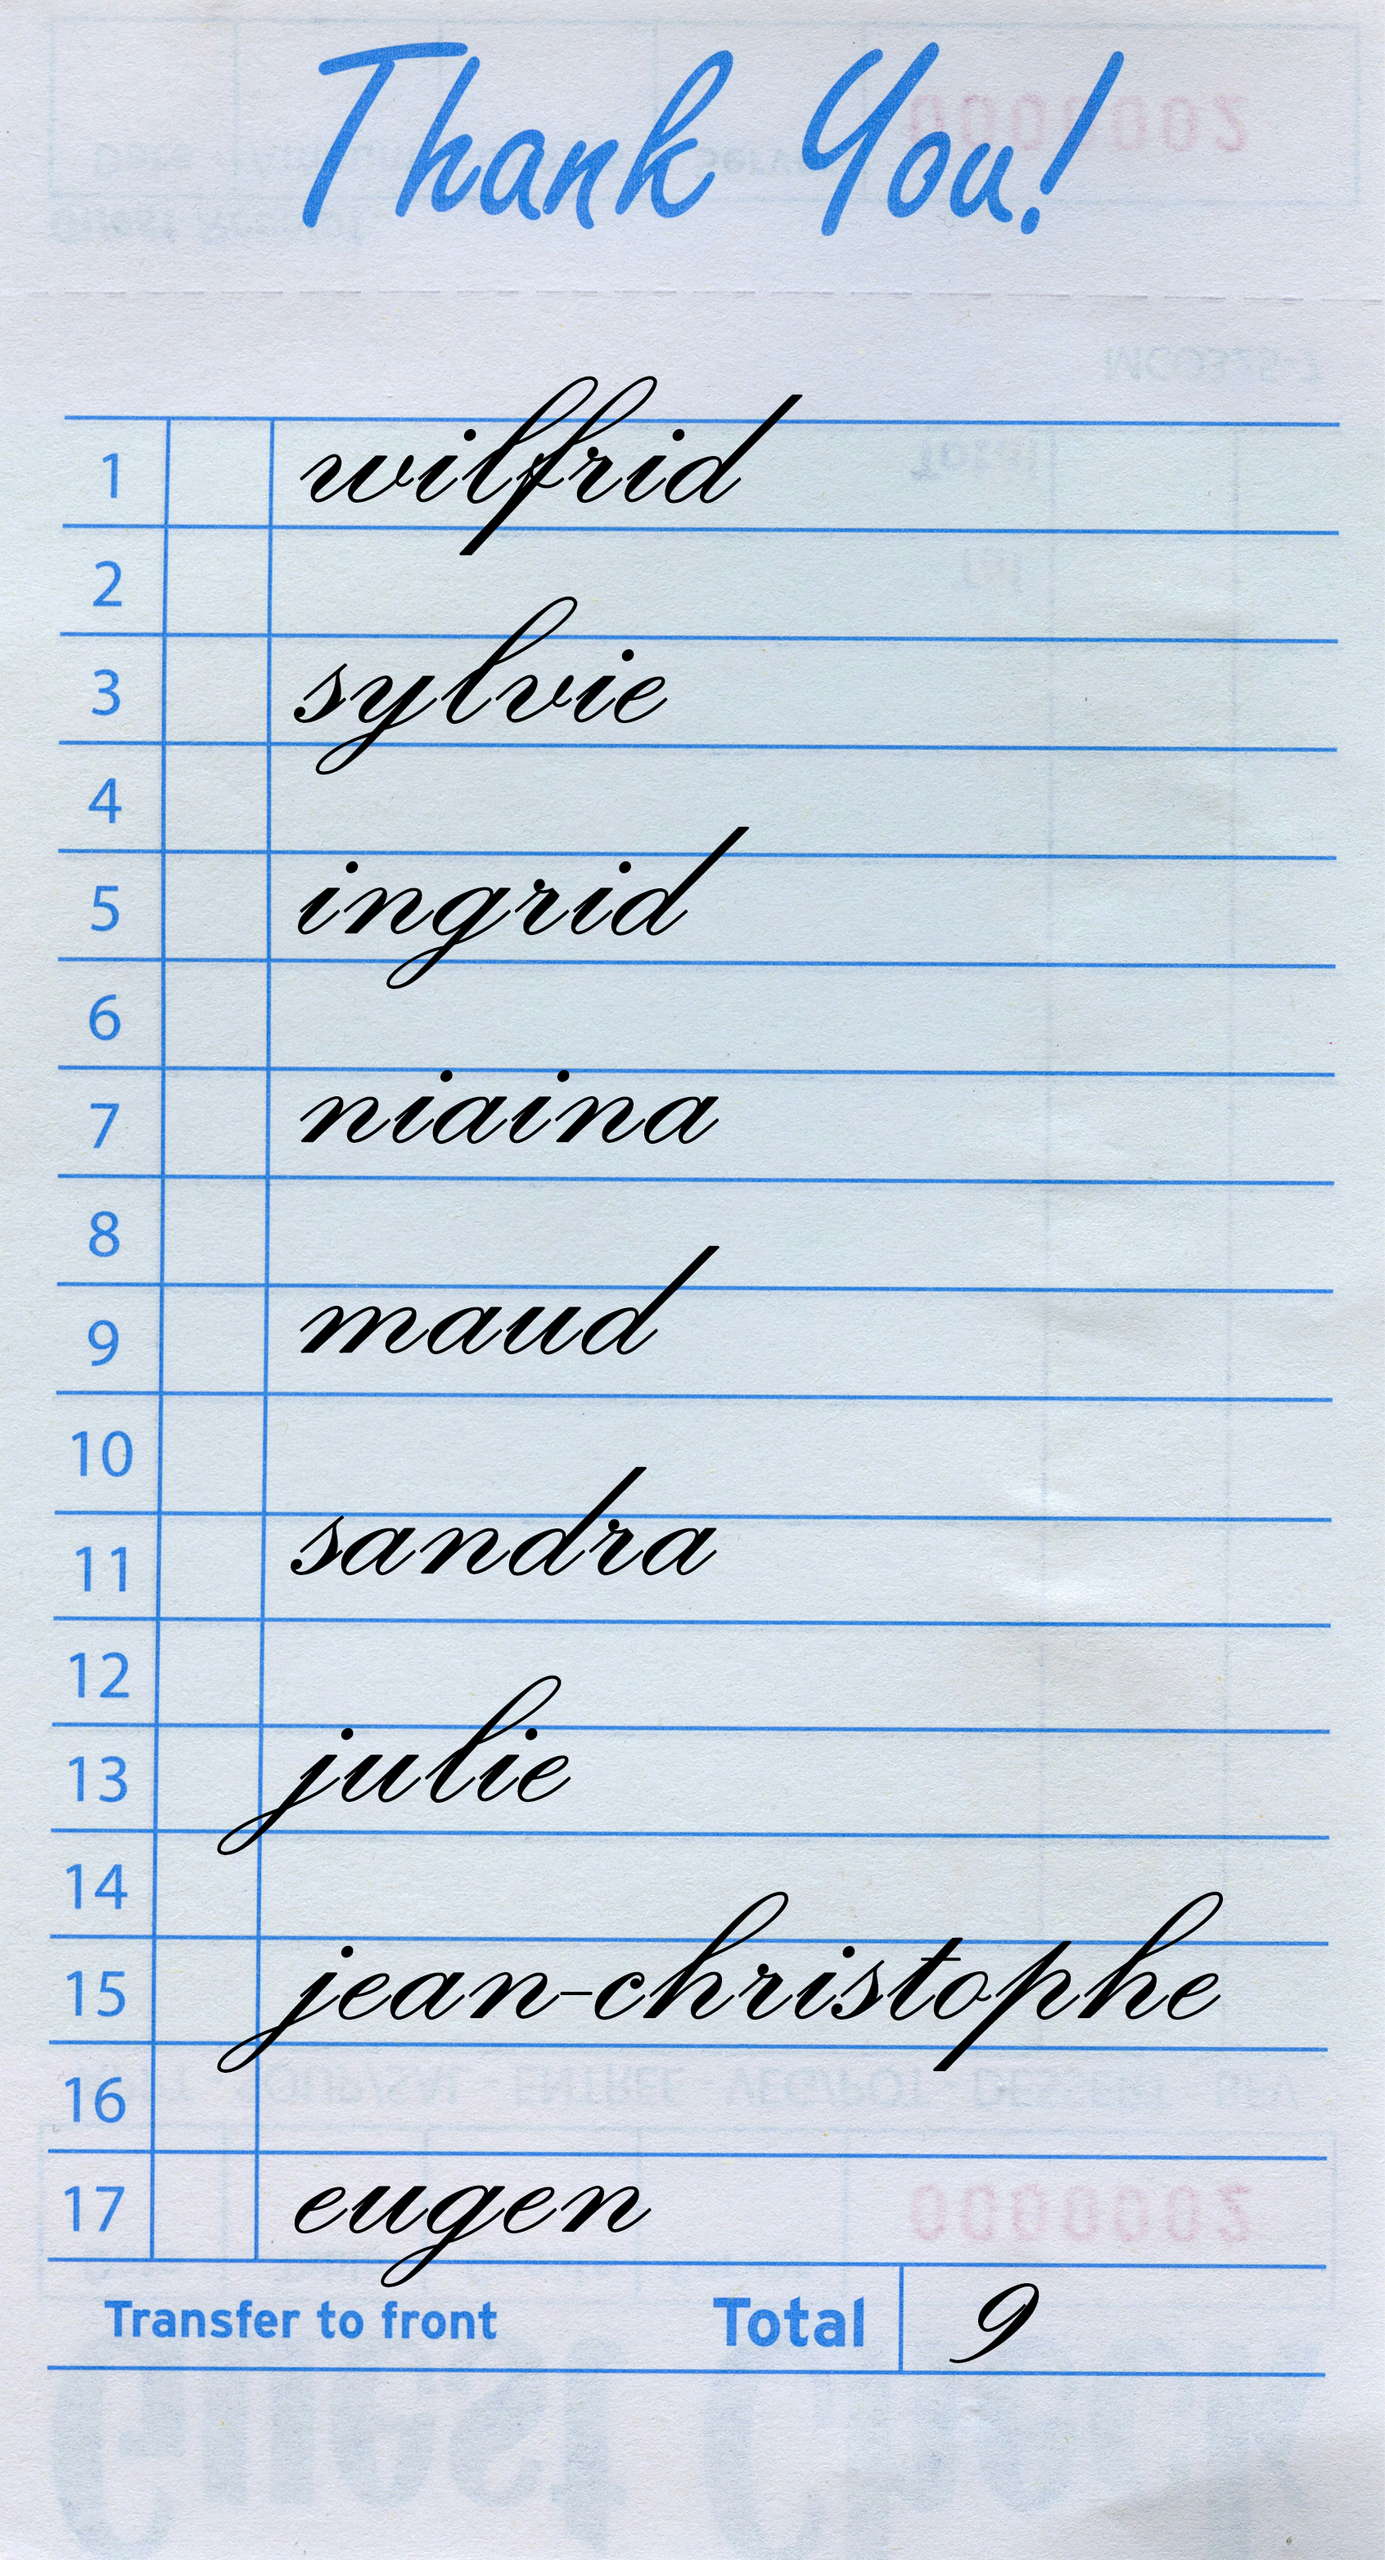 Thank You!
1 wilfrid
2
3 sylvie
4
5 ingrid
6
7 niaina
8
9 maud
10
11 sandra
12
13 julie
14
15 jean-christophe
16
17 eugen
Transfer to front Total 9